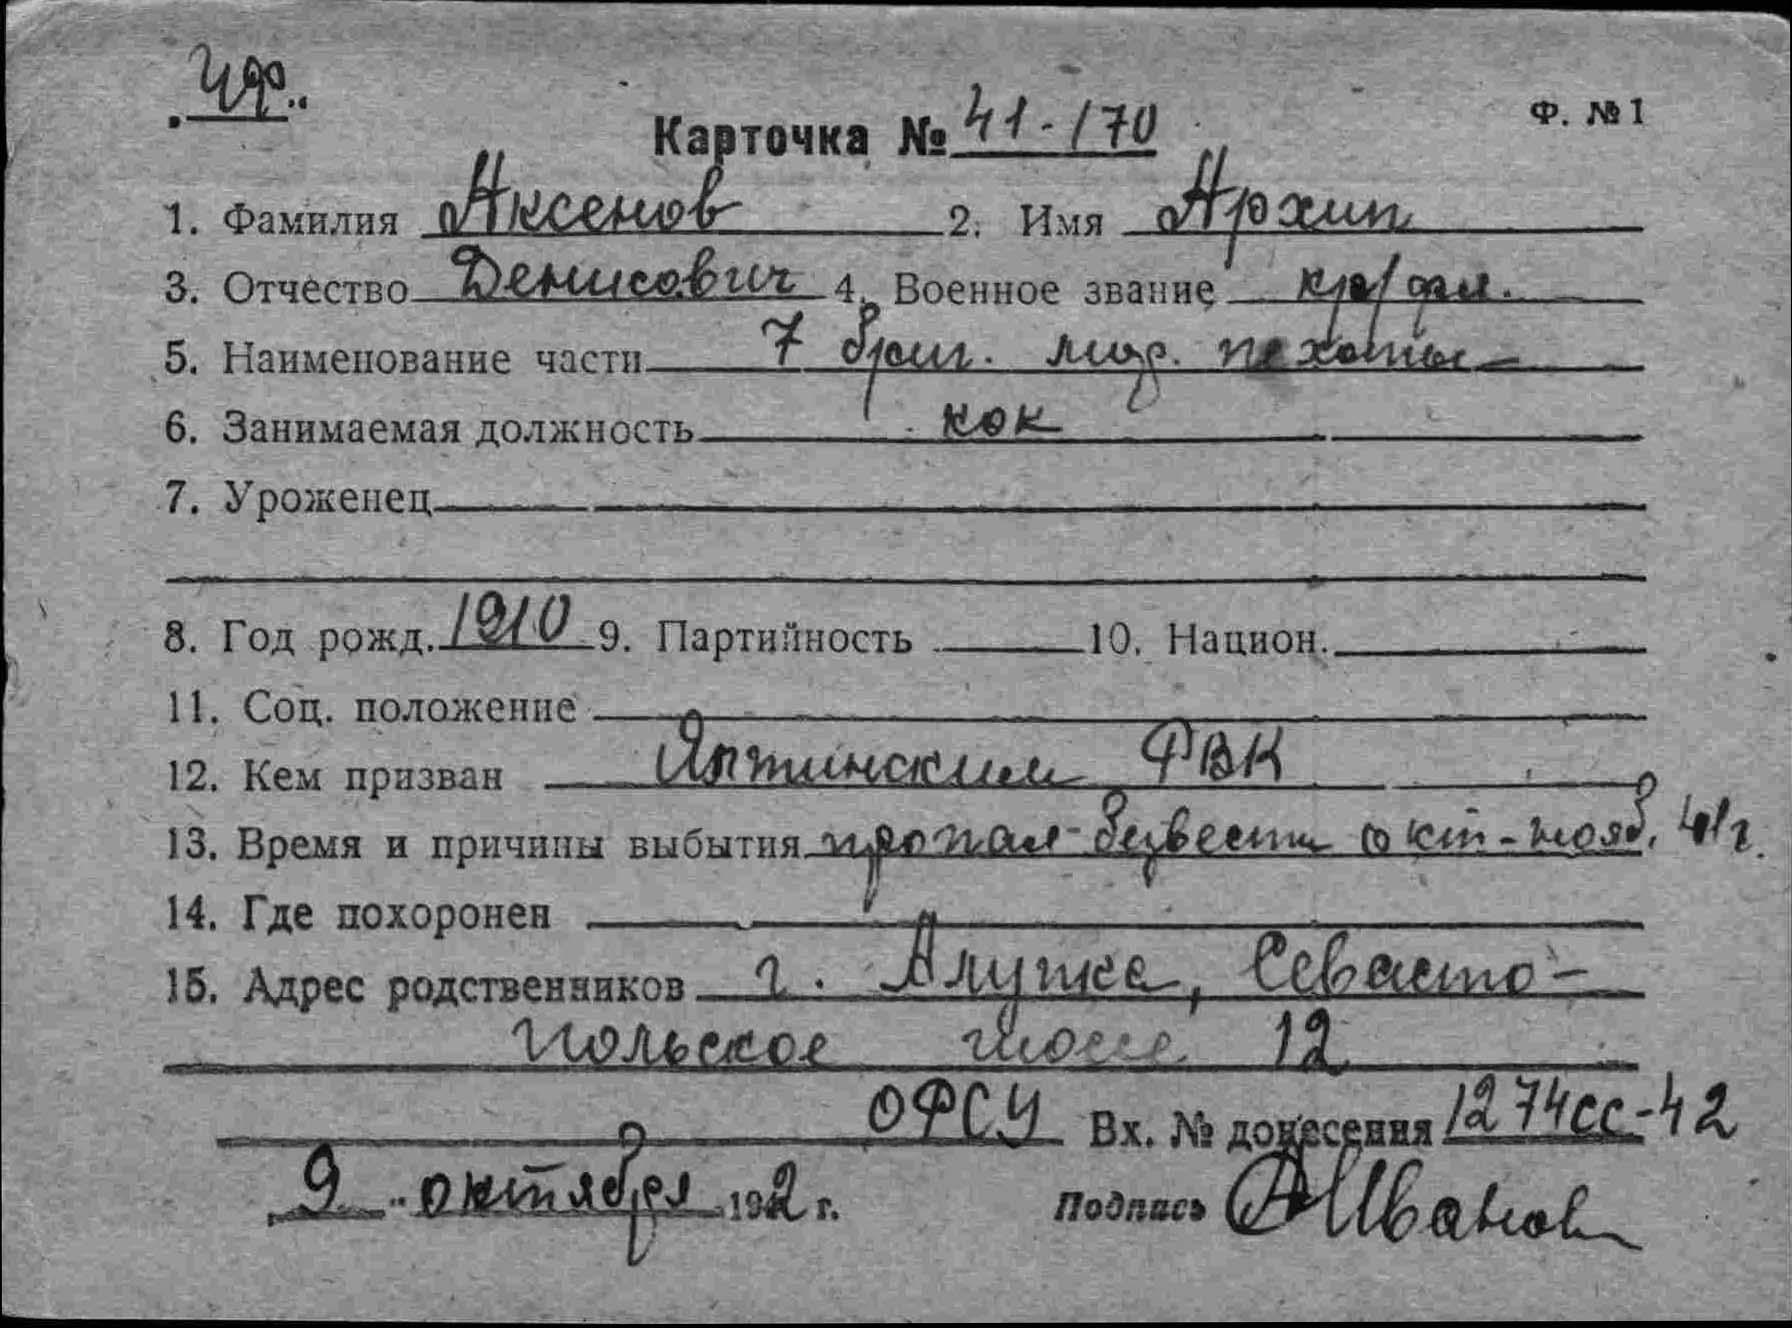 ЧФ.
Карточка № 41-170 Ф. № 1
1. Фамилия Аксенов 2. Имя Архип
3. Отчество Денисович 4. Военное звание кр/фл.
5. Наименование части 7 бриг. мор. пехоты
6. Занимаемая должность кок
7. Уроженец
8. Год рожд. 1910 9. Партийность 10. Национ.
11. Соц. положение
12. Кем призван Ялтинским РВК
13. Время и причины выбытия пропал безвести окт-нояб. 41г.
14. Где похоронен
15. Адрес родственников г. Алупка, Севасто-
польское шоссе 12
ОФСУ Вх. № донесения 1274сс-42
9 октября 1942 г. Подпись АИванов